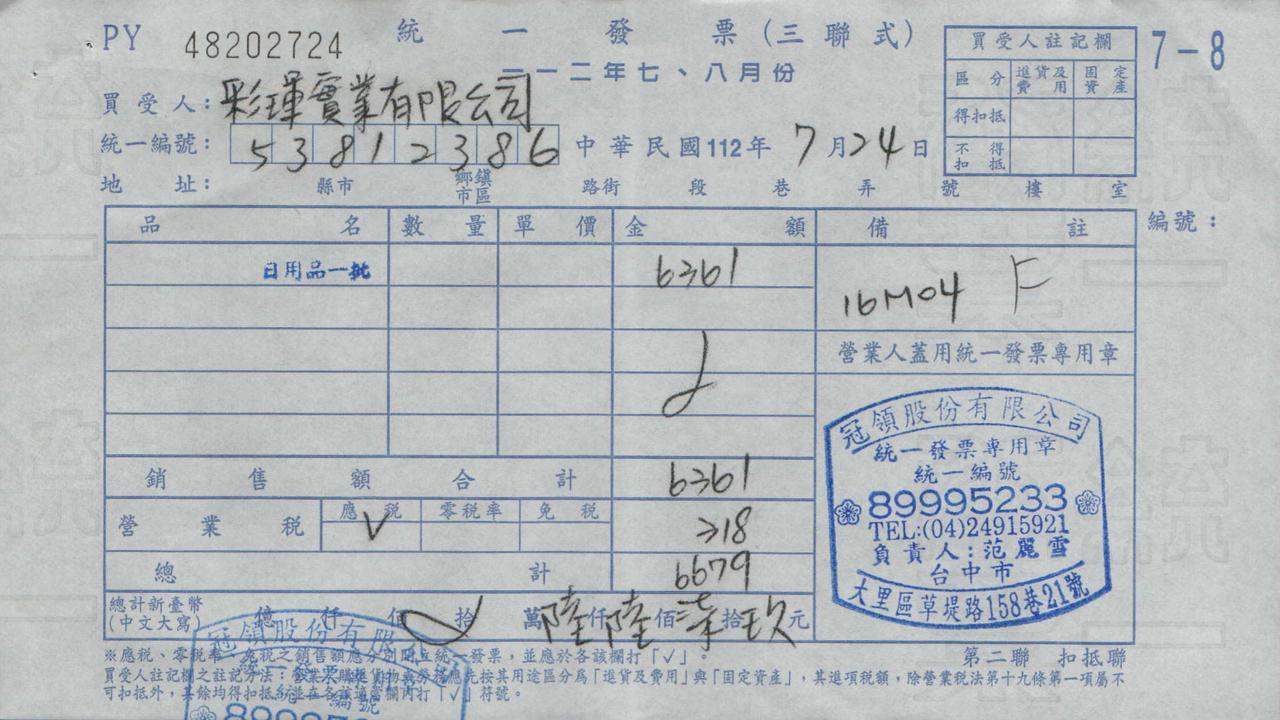 PY 48202724 統一發票(三聯式) 7-8
一一二年七、八月份
買受人註記欄
區分 進貨及費用 固定資產
得扣抵
不得扣抵
買受人: 彩琿實業有限公司
統一編號: 53812386 中華民國112年7月24日
地址: 縣市 鄉鎮市區 路街 段 巷 弄 號 樓 室
品名 數量 單價 金額 備註 編號:
日用品一批 6361 16M04 F
營業人蓋用統一發票專用章
銷售額合計 6361
營業稅 應稅 V 零稅率 免稅 318
總計 6679
總計新臺幣
(中文大寫) 億 仟 佰 拾 萬 陸仟 陸佰 柒拾 玖元
冠領股份有限公司
統一發票專用章
統一編號
89995233
TEL:(04)24915921
負責人:范麗雪
台中市
大里區草堤路158巷21號
冠領股份有限
※應稅、零稅率、免稅之銷售額應分別開立統一發票,並應於各該欄打「✓」。
第二聯 扣抵聯
買受人註記欄之註記方法:營業人購進貨物或勞務應先按其用途區分為「進貨及費用」與「固定資產」,其進項稅額,除營業稅法第十九條第一項屬不
可扣抵外,其餘均得扣抵,並在各該適當欄內打「✓」符號。